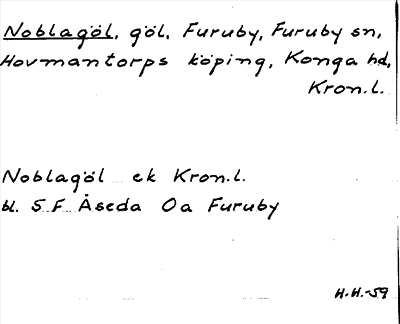 Noblagöl, göl, Furuby, Furuby sn,
Hovmantorps köping, Konga hd,
Kron.l.
Noblagöl ek Kron.l.
bl. 5 F Åseda Oa Furuby
H.H.-59